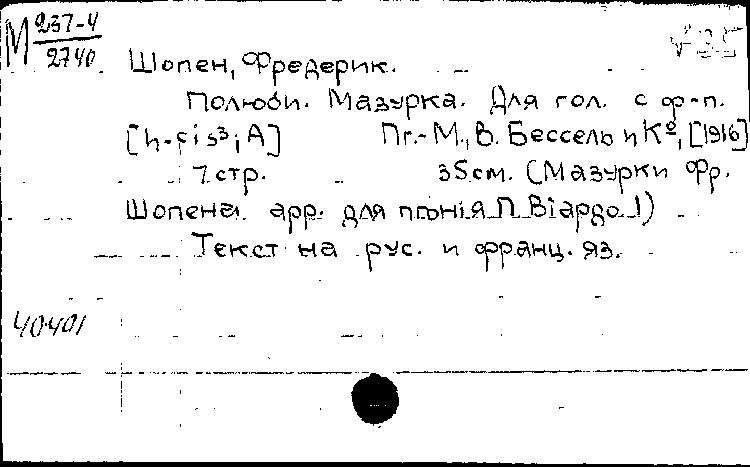 М 237-4
2740
Шопен, Фредерик.
Полюби. Мазурка. Для гол. с ф-п.
[h-fis³; A] Пг.-М., В. Бессель и Кº, [1916]
7 стр. 35 см. (Мазурки Фр.
Шопена арр. для пѣнія П. Віардо 1)
Текст на рус. и франц. яз.
40401